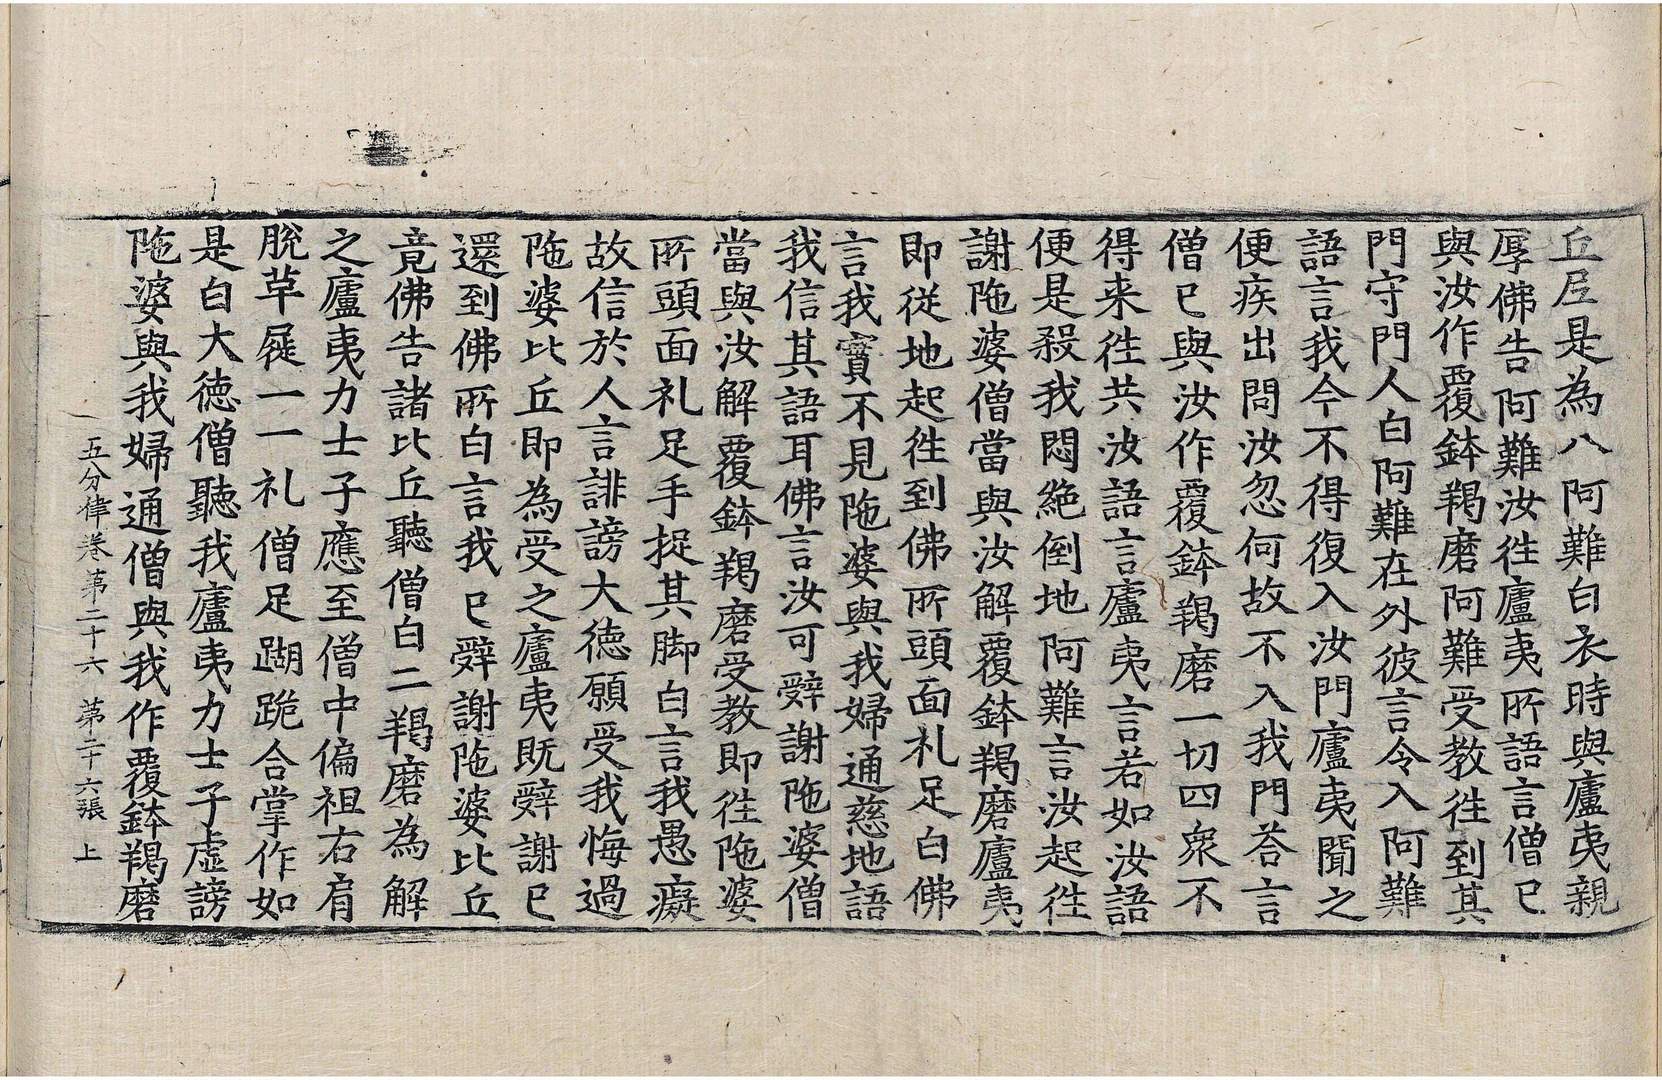 丘尼是為八阿難白衣時與廬夷親
厚佛告阿難汝往廬夷所語言僧已
與汝作覆鉢羯磨阿難受教往到其
門守門人白阿難在外彼言令入阿難
語言我今不得復入汝門廬夷聞之
便疾出問汝忽何故不入我門荅言
僧已與汝作覆鉢羯磨一切四衆不
得来往共汝語言廬夷言若如汝語
便是殺我悶絕倒地阿難言汝起往
謝陁婆僧當與汝解覆鉢羯磨廬夷
即從地起往到佛所頭面礼足白佛
言我實不見陁婆與我婦通慈地語
我信其語耳佛言汝可辭謝陁婆僧
當與汝解覆鉢羯磨受教即往陁婆
所頭面礼足手捉其脚白言我愚癡
故信於人言誹謗大德願受我悔過
陁婆比丘即為受之廬夷既辭謝已
還到佛所白言我已辭謝陁婆比丘
竟佛告諸比丘聽僧白二羯磨為解
之廬夷力士子應至僧中偏袒右肩
脫革屣一一礼僧足䠒跪合掌作如
是白大德僧聽我廬夷力士子虛謗
陁婆與我婦通僧與我作覆鉢羯磨
五分律卷第二十六 第二十六張 上